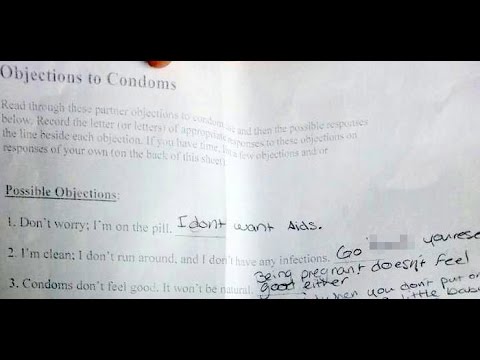 Objections to Condoms
Read through these partner objections to condom use and then the possible responses
below. Record the letter (or letters) of appropriate responses to these objections on
the line beside each objection. If you have time, a few objections and or
responses of your own (on the back of this sheet).
Possible Objections:
1. Don't wory; I'm on the pill. I dont want Aids.
2. I'm clean; I don't run around, and I don't have any infections. Go yourse
3. Condoms don't feel good. It won't be natural. Being pregnant doesn't feel
good either
when you dont put on
a little bab